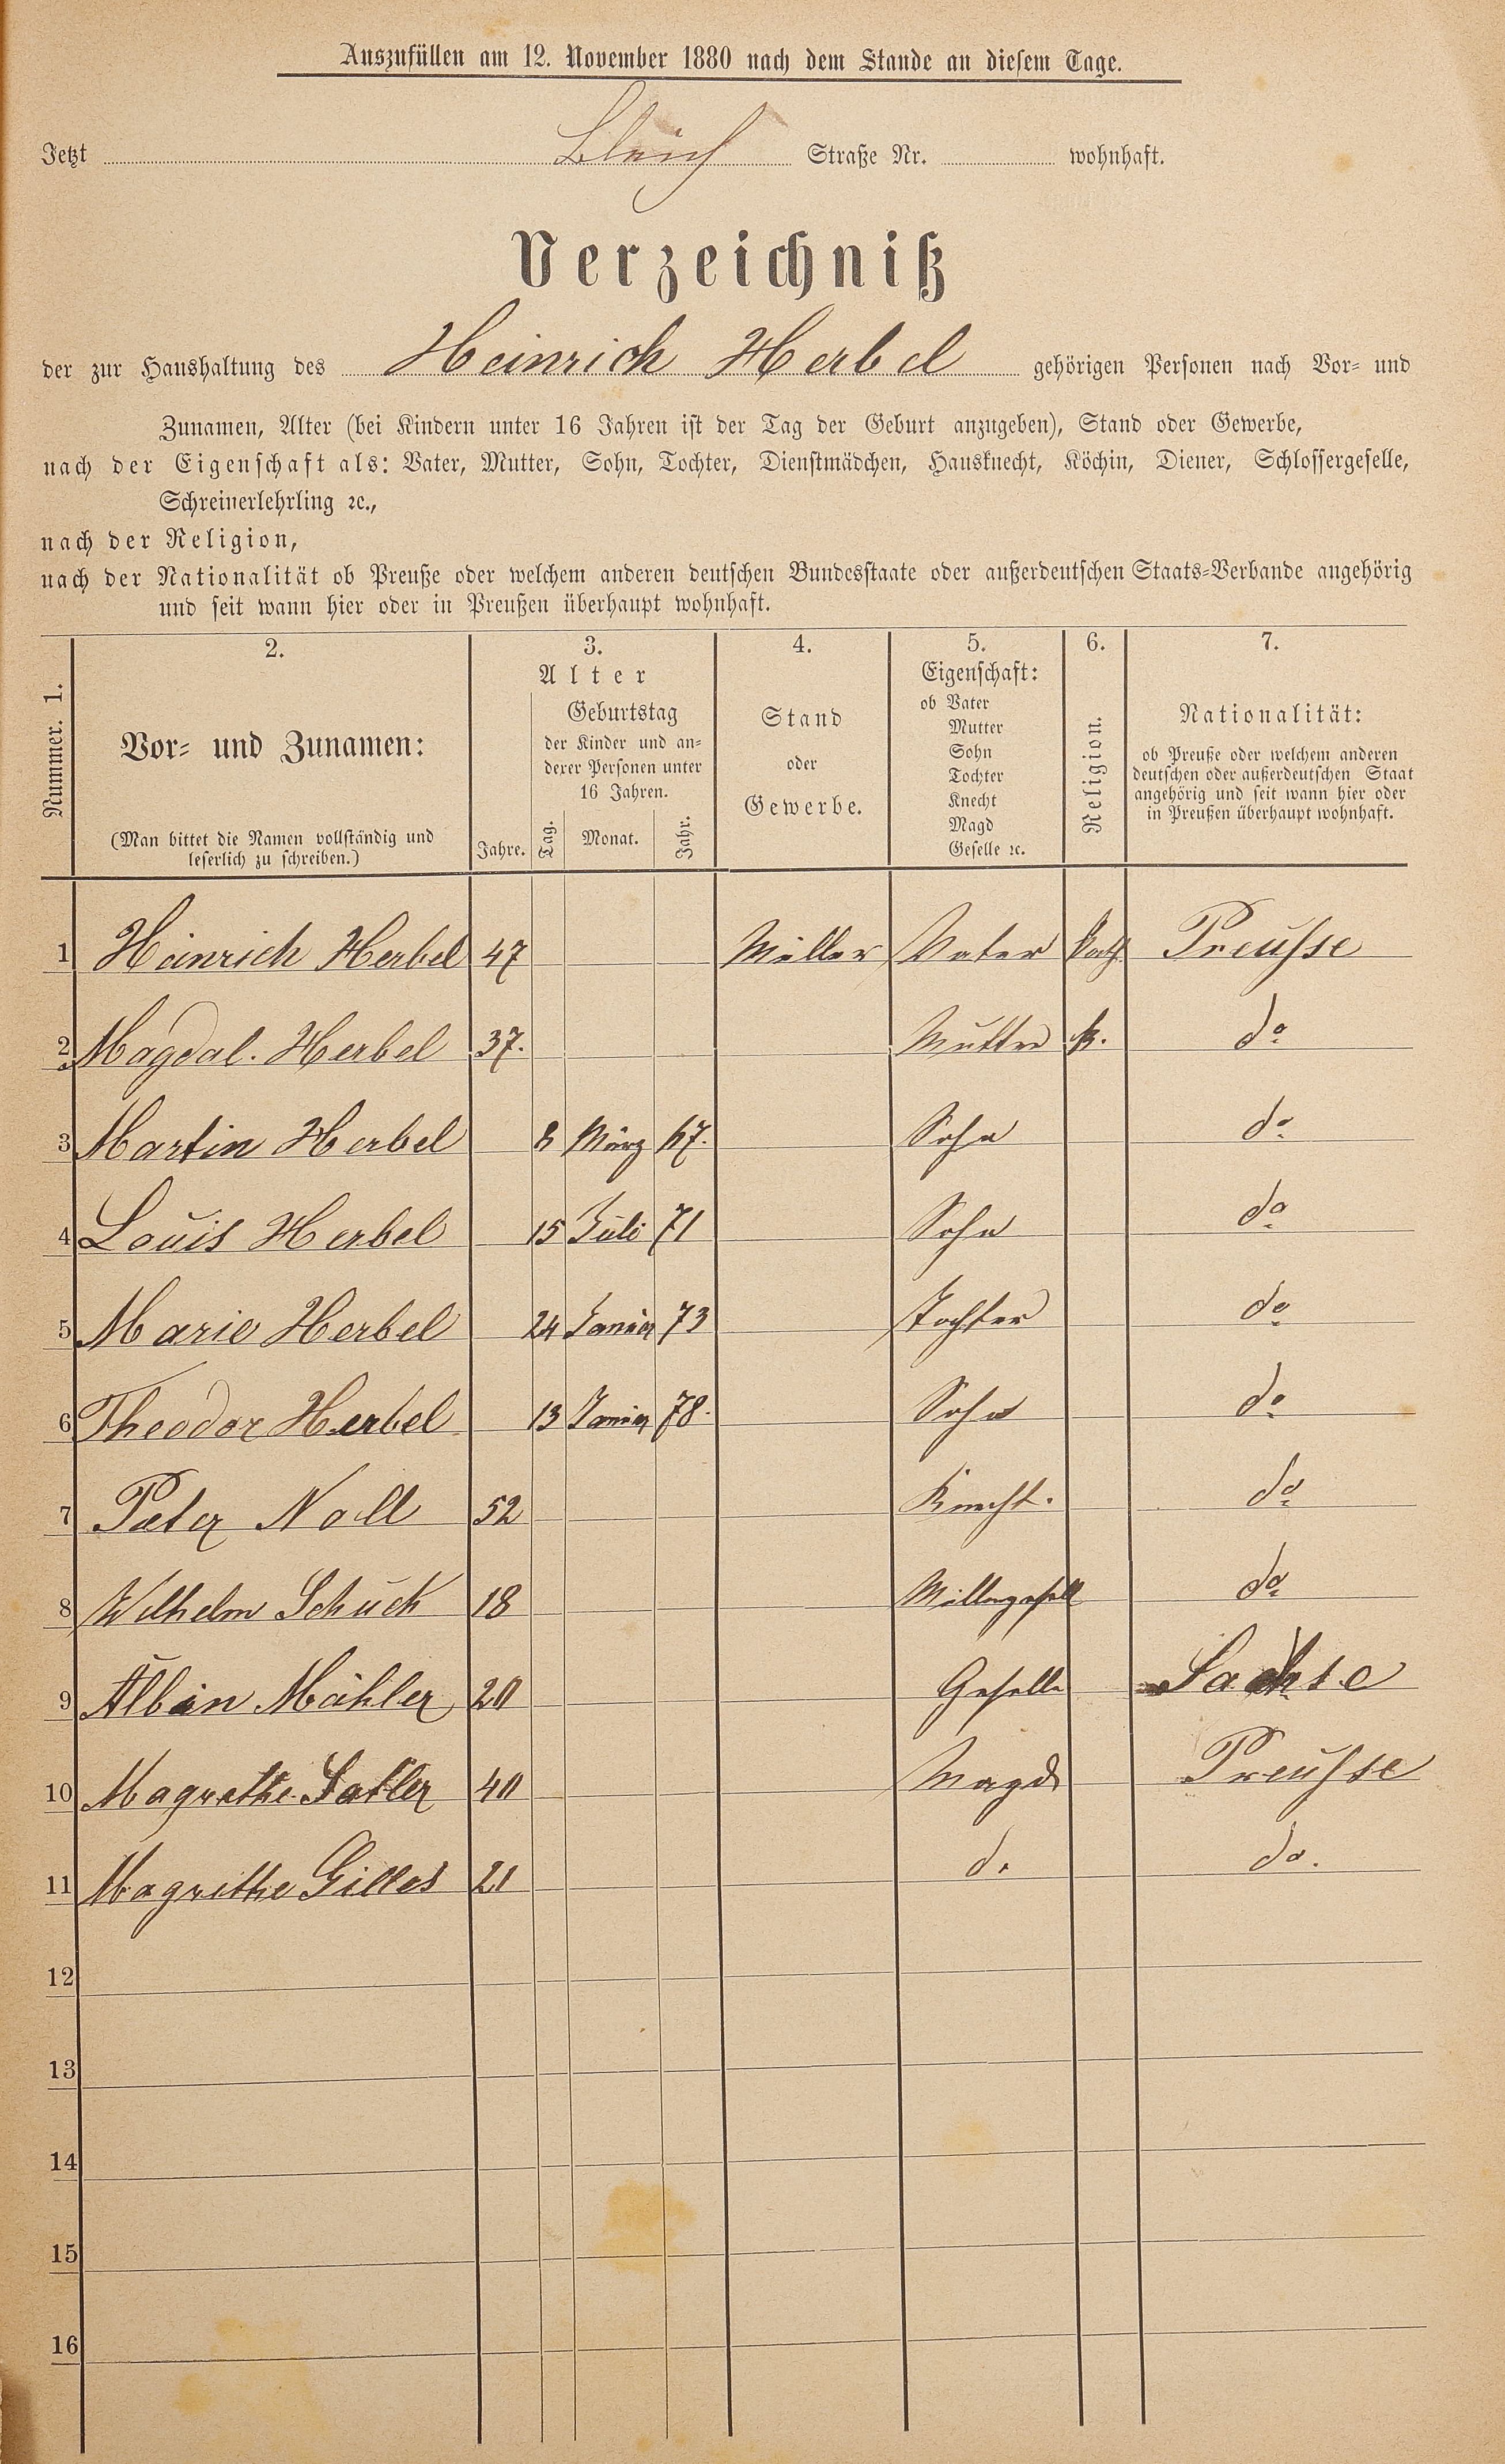 Auszufüllen am 12. November 1880 nach dem Stande an diesem Tage.
Jetzt Bleich Straße Nr. wohnhaft.
Verzeichniß
der zur Haushaltung des Heinrich Herbel gehörigen Personen nach Vor- und
Zunamen, Alter (bei Kindern unter 16 Jahren ist der Tag der Geburt anzugeben), Stand oder Gewerbe,
nach der Eigenschaft als: Vater, Mutter, Sohn, Tochter, Dienstmädchen, Hausknecht, Köchin, Diener, Schlossergeselle,
Schreinerlehrling ꝛc.,
nach der Religion,
nach der Nationalität ob Preuße oder welchem anderen deutschen Bundesstaate oder außerdeutschen Staats-Verbande angehörig
und seit wann hier oder in Preußen überhaupt wohnhaft.
Nummer. 1.
2.
Vor- und Zunamen:
(Man bittet die Namen vollständig und
leserlich zu schreiben.)
3.
Alter
Jahre.
Geburtstag
der Kinder und an-
derer Personen unter
16 Jahren.
Tag. Monat. Jahr.
4.
Stand
oder
Gewerbe.
5.
Eigenschaft:
ob Vater
Mutter
Sohn
Tochter
Knecht
Magd
Geselle ꝛc.
6.
Religion.
7.
Nationalität:
ob Preuße oder welchem anderen
deutschen oder außerdeutschen Staat
angehörig und seit wann hier oder
in Preußen überhaupt wohnhaft.
1 Heinrich Herbel 47 Müller Vater Kath. Preusse
2 Magdal. Herbel 37. Mutter k. do
3 Martin Herbel 8 März 67. Sohn do
4 Louis Herbel 15 Juli 71 Sohn do
5 Marie Herbel 24 Januar 73 Tochter do
6 Theodor Herbel 13 Januar 78. Sohn do
7 Peter Noll 52 Knecht. do
8 Wilhelm Schuck 18 Müllergesell do
9 Albin Mähler 20 Geselle Sachse
10 Magrethe Satler 40 Magd Preusse
11 Magrethe Gilles 21 do do.
12
13
14
15
16